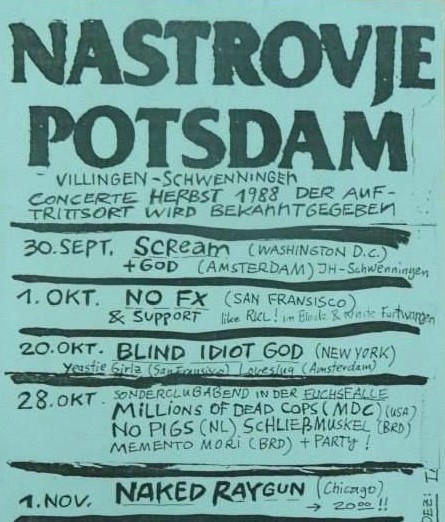 NASTROVJE
POTSDAM
VILLINGEN-SCHWENNINGEN
CONCERTE HERBST 1988 DER AUF-
TRITTSORT WIRD BEKANNTGEGEBEN
30.SEPT. SCREAM (WASHINGTON D.C.)
+GOD (AMSTERDAM) JH-Schwenningen
1. OKT. NO FX (SAN FRANSISCO)
& SUPPORT like RKL! im Black & White Furtwangen
20.OKT. BLIND IDIOT GOD (NEW YORK)
Yeastie Girlz (San Fransisco) Loveslug (Amsterdam)
28.OKT. SONDERCLUBABEND IN DER FUCHSFALLE
MILLIONS OF DEAD COPS (MDC) (USA)
NO PIGS (NL) SCHLIEẞMUSKEL (BRD)
MEMENTO MORI (BRD) + PARTY!
1. NOV. NAKED RAYGUN (Chicago)
→ 20⁰⁰!!
DEZ: